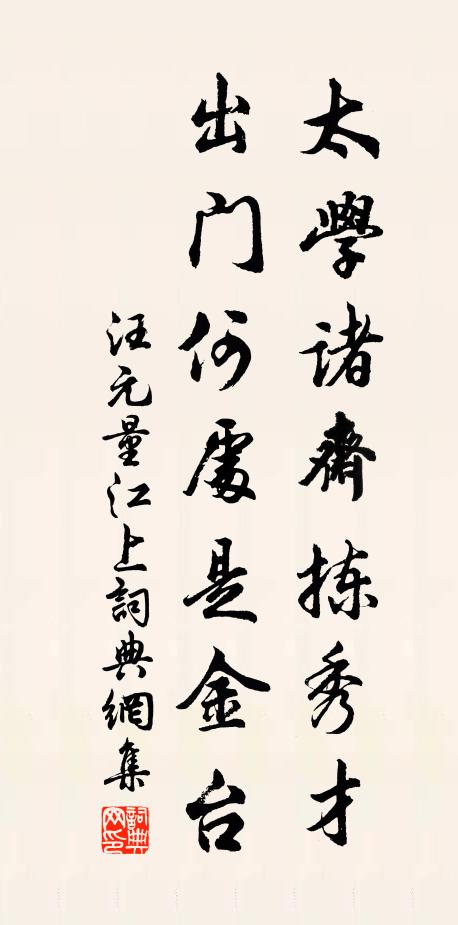 太學諸齋揀秀才
出門何處是金台
汪元量江上詞典網集
詞典網印